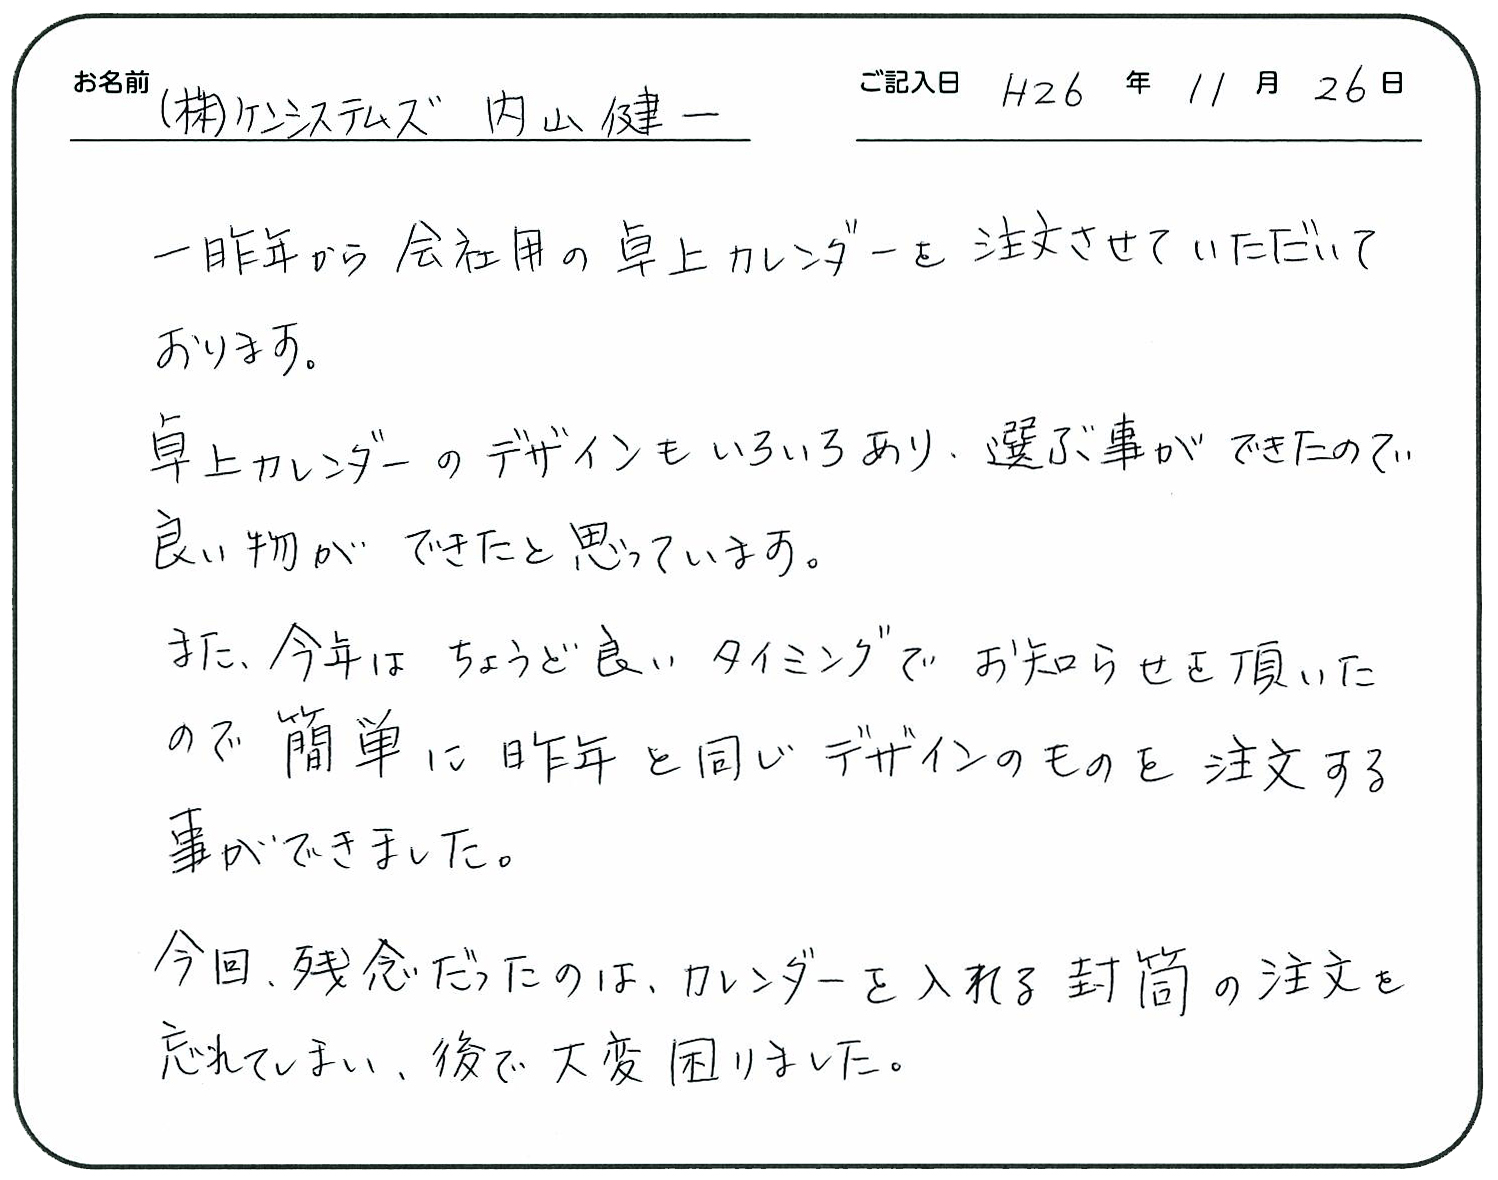 お名前 (株)ケンシステムズ 内山健一 ご記入日 H26 年 11 月 26 日
一昨年から会社用の卓上カレンダーを注文させていただいて
おります。
卓上カレンダーのデザインもいろいろあり、選ぶ事ができたので
良い物ができたと思っています。
また、今年はちょうど良いタイミングでお知らせを頂いた
ので簡単に昨年と同じデザインのものを注文する
事ができました。
今回、残念だったのは、カレンダーを入れる封筒の注文を
忘れてしまい、後で大変困りました。